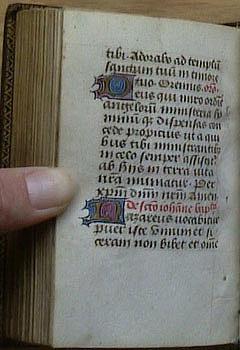 tibi. Adorabo ad templũ
sanctum tuũ in timore
tuo. Oremus. orõ.
Deus qui miro ordine
angelorũ ministeria ho
minũ q; dispensas con
cede propicius ut a qui
bus tibi ministrantibus
in celo semper assistit
ab hiis in terra vita
nr̃a muniatur. Per
xp̃m dñm nr̃m. Amen
De sctõ iohane bapta
Nazareus vocabitur
puer iste vinum et si
ceram non bibet et om̃e